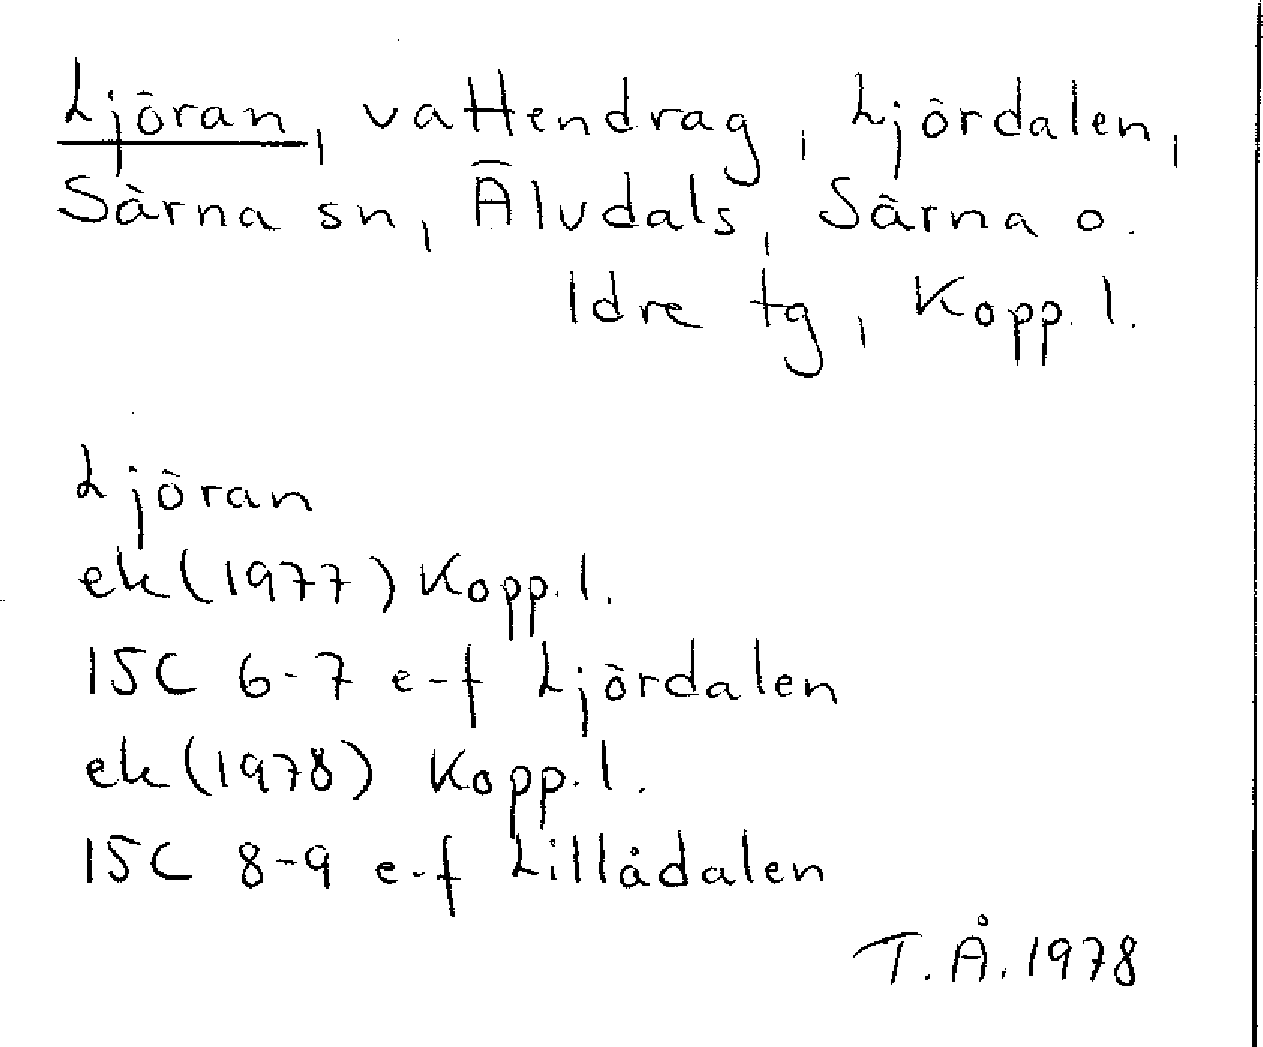 Ljöran, vattendrag, Ljördalen,
Särna sn, Älvdals, Särna o.
Idre tg, Kopp. l.
Ljöran
ek (1977) Kopp. l.
15C 6-7 e-f Ljördalen
ek (1978) Kopp. l.
15C 8-9 e-f Lillådalen
T.Å. 1978